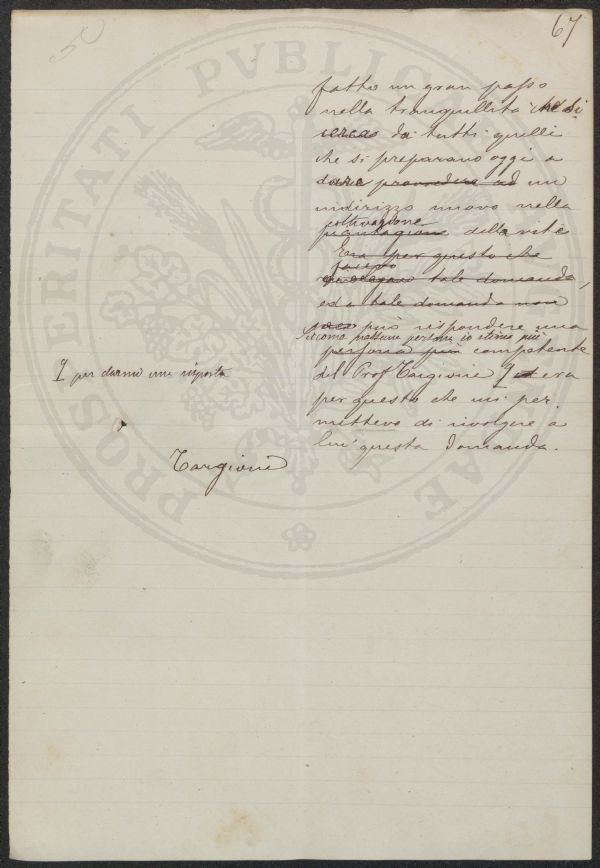 67
fatto un gran passo
nella tranquillità che si
cerca da tutti quelli
che si preparano oggi a
dare provvedere ad un
indirizzo nuovo nella
coltivazione
piantagione della vite
Era per questo che
facevo
tale domanda,
ed a tale domanda non
può rispondere una
Siccome nessuna persona io stimo più
persona più competente
del Prof Targioni era
per questo che mi per
mettevo di rivolgere a
lui questa domanda.
per darmi una risposta
Targioni
PROSPERITATI PVBLICAE